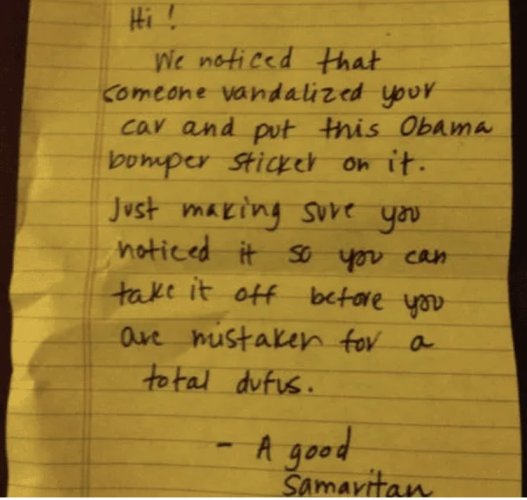 Hi!
We noticed that
someone vandalized your
car and put this Obama
bomper sticker on it.
Just making sure you
noticed it so you can
take it off before you
are mistaken for a
total dufus.
- A good
Samaritan